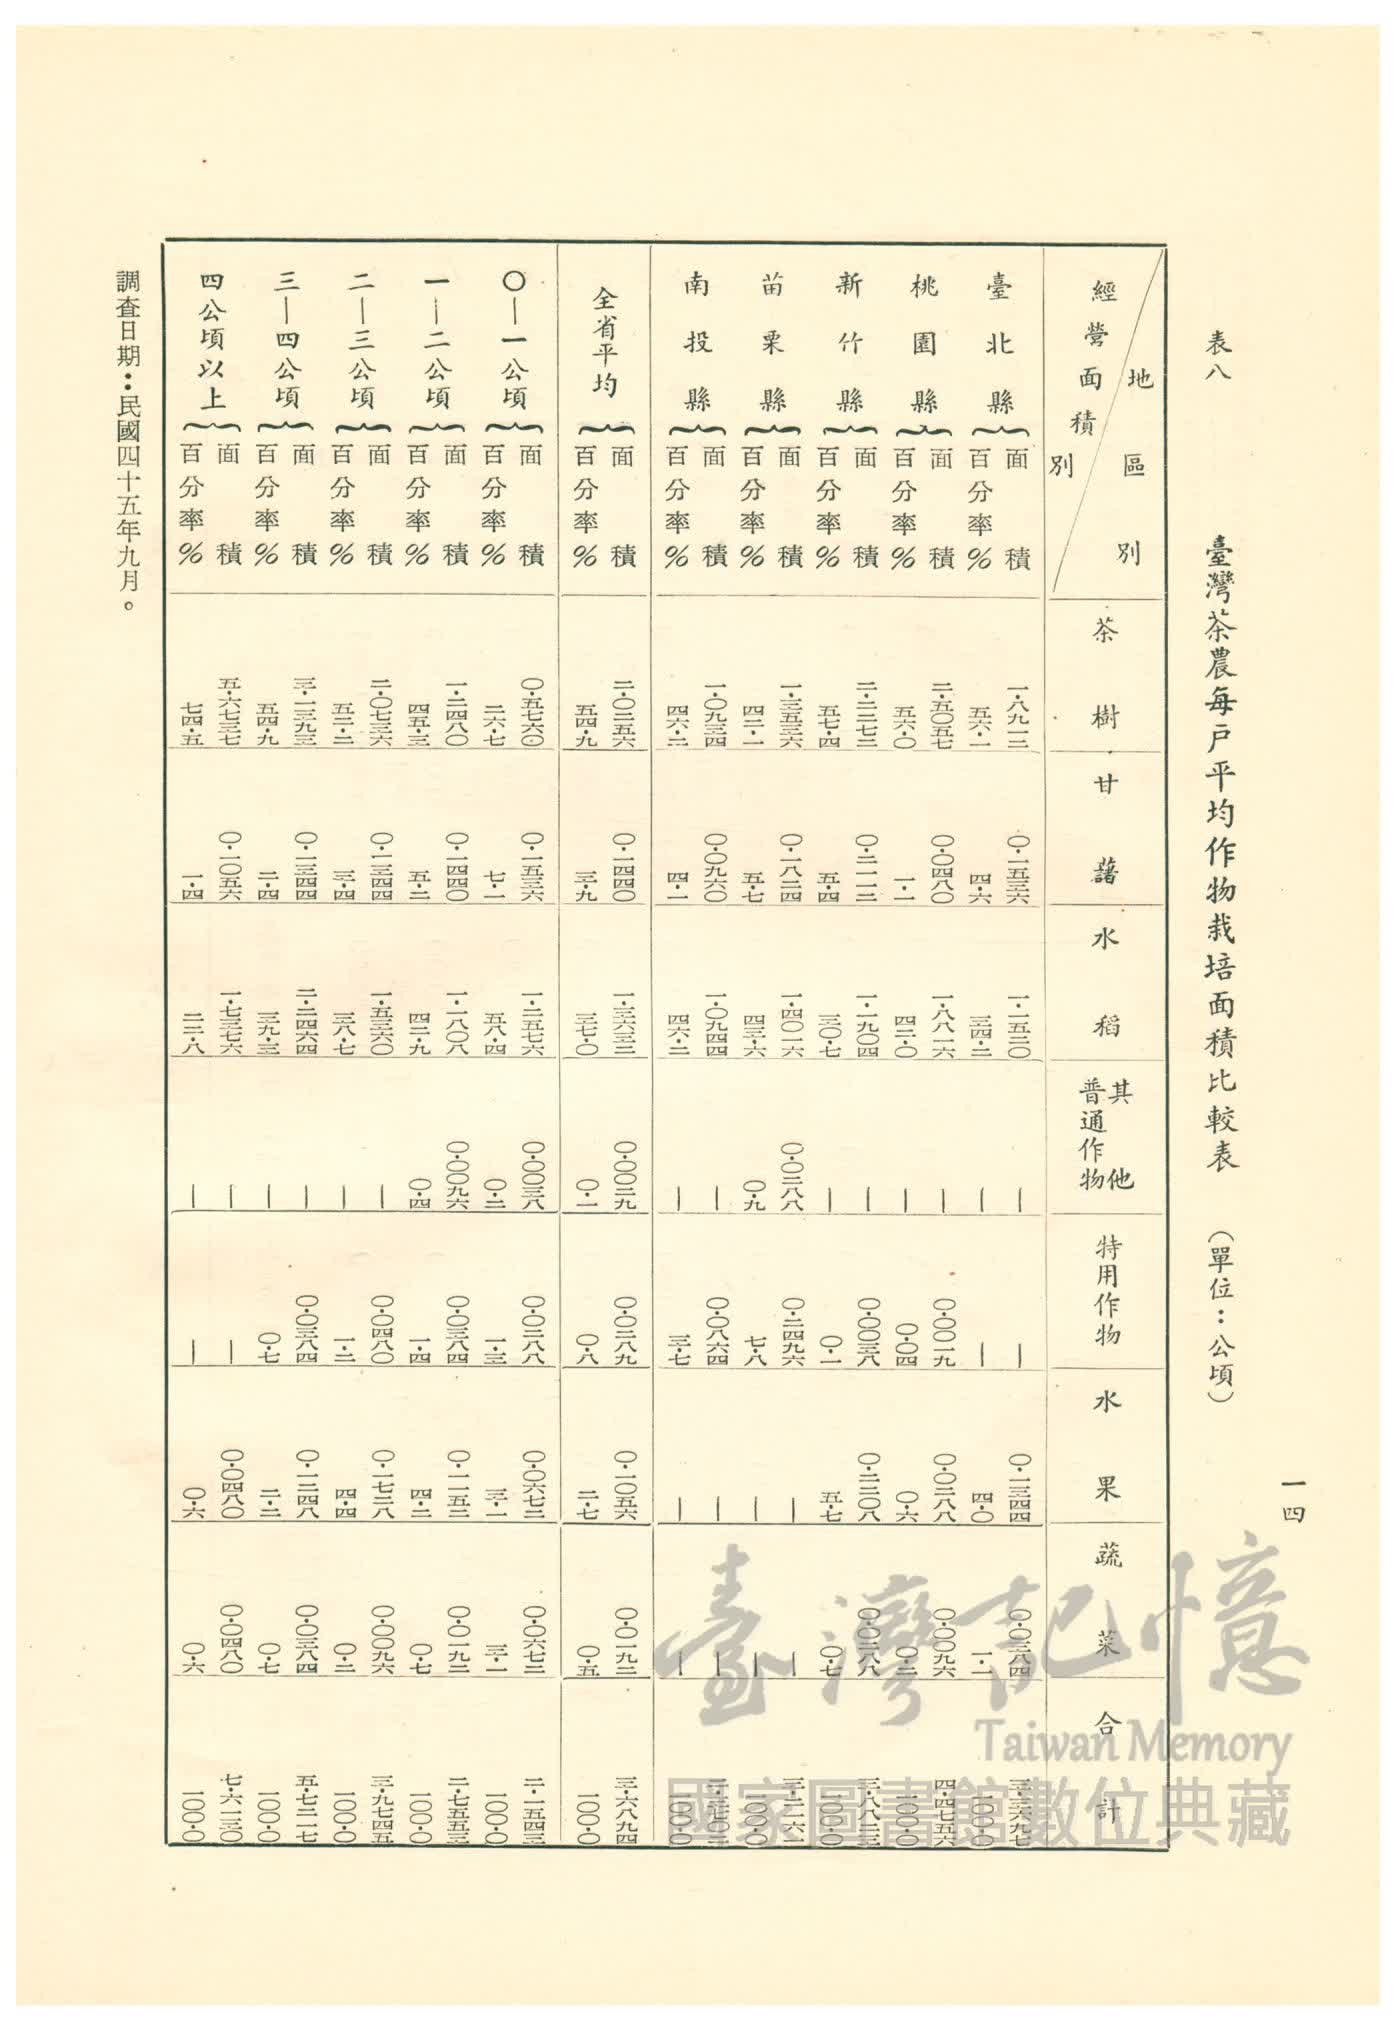 一四
表八 臺灣茶農每戶平均作物栽培面積比較表 (單位：公頃)
地區別 經營面積別 茶樹 甘藷 水稻 其他普通作物 特用作物 水果 蔬菜 合計
臺北縣 面積 一·八九一二 〇·一五三六 一·一五二〇 — — 〇·一三四四 〇·〇三八四 三·三六九七
百分率% 五六·一 四·六 三四·二 — — 四·〇 一·一 一〇〇·〇
桃園縣 面積 二·五〇五七 〇·〇四八〇 一·八八一六 — 〇·〇〇一九 〇·〇二八八 〇·〇〇九六 四·四七五六
百分率% 五六·〇 一·一 四二·〇 — 〇·〇四 〇·六 〇·二 一〇〇·〇
新竹縣 面積 二·二二七二 〇·二一一二 一·一九〇四 — 〇·〇〇三八 〇·二二〇八 〇·〇二八八 三·八八二三
百分率% 五七·四 五·四 三〇·七 — 〇·一 五·七 〇·七 一〇〇·〇
苗栗縣 面積 一·三五三六 〇·一八二四 一·四〇一六 〇·〇二八八 〇·二四九六 — — 三·二一六一
百分率% 四二·一 五·七 四三·六 〇·九 七·八 — — 一〇〇·〇
南投縣 面積 一·〇九三四 〇·〇九六〇 一·〇九四四 — 〇·〇八六四 — — 二·三七〇二
百分率% 四六·二 四·一 四六·二 — 三·七 — — 一〇〇·〇
全省平均 面積 二·〇二五六 〇·一四四〇 一·三六三二 〇·〇〇二九 〇·〇二八九 〇·一〇五六 〇·〇一九二 三·六八九四
百分率% 五四·九 三·九 三七·〇 〇·一 〇·八 二·七 〇·五 一〇〇·〇
〇—一公頃 面積 〇·五七六〇 〇·一五三六 一·二五七六 〇·〇〇三八 〇·〇二八八 〇·〇六七二 〇·〇六七二 二·一五四三
百分率% 二六·七 七·一 五八·四 〇·二 一·三 三·一 三·一 一〇〇·〇
一—二公頃 面積 一·二四八〇 〇·一四四〇 一·一八〇八 〇·〇〇九六 〇·〇三八四 〇·一一五二 〇·〇一九二 二·七五五三
百分率% 四五·三 五·二 四二·九 〇·四 一·四 四·二 〇·七 一〇〇·〇
二—三公頃 面積 二·〇七三六 〇·一三四四 一·五三六〇 — 〇·〇四八〇 〇·一七二八 〇·〇〇九六 三·九七四五
百分率% 五二·二 三·四 三八·七 — 一·二 四·四 〇·二 一〇〇·〇
三—四公頃 面積 三·一三九三 〇·一三四四 二·二四六四 — 〇·〇三八四 〇·一二四八 〇·〇三八四 五·七二一七
百分率% 五四·九 二·四 三九·三 — 〇·七 二·二 〇·七 一〇〇·〇
四公頃以上 面積 五·六七三七 〇·一〇五六 一·七三七六 — — 〇·〇四八〇 〇·〇四八〇 七·六一三〇
百分率% 七四·五 一·四 二二·八 — — 〇·六 〇·六 一〇〇·〇
調查日期：民國四十五年九月。
臺灣記憶
Taiwan Memory
國家圖書館數位典藏